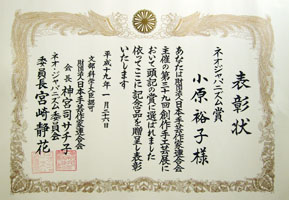 表彰状
ネオジャパニズム賞
小原裕子様
あなたは財団法人日本手工芸作家連合会
主催の第三十九回創作手工芸展に
おいて頭記の賞に選ばれました
依ってここに記念品を贈呈し表彰
いたします
平成十九年一月二十六日
文部科学大臣認可
財団法人日本手工芸作家連合会
会長神宮司サチ子
ネオジャパニズム委員会
委員長宮崎静花